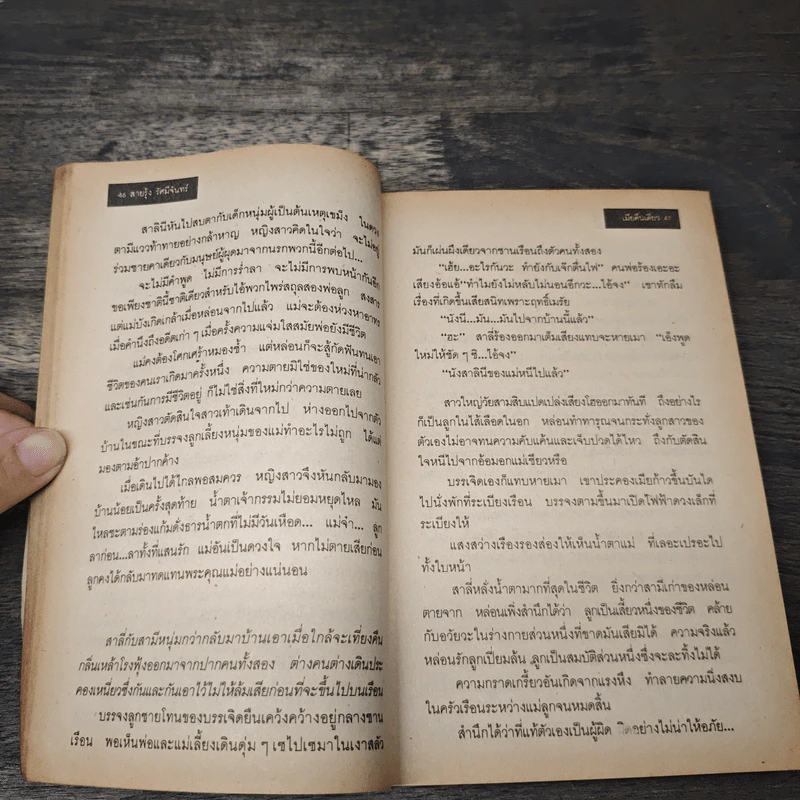 ๔๖ สายรุ้ง รัศมีจันทร์
สาลินีหันไปสบตากับเด็กหนุ่มผู้เป็นต้นเหตุเขม็ง ในดวง
ตามีแววท้าทายอย่างกล้าหาญ หญิงสาวคิดในใจว่า จะไม่อยู่
ร่วมชายคาเดียวกับมนุษย์ผู้ผุดมาจากนรกพวกนี้อีกต่อไป...
จะไม่มีคำพูด ไม่มีการร่ำลา จะไม่มีการพบหน้ากันอีก
ขอเพียงชาตินี้ชาติเดียวสำหรับไอ้พวกไพร่สถุลสองพ่อลูก สงสาร
แต่แม่บังเกิดเกล้าเมื่อหล่อนจากไปแล้ว แม่จะต้องห่วงหาอาทร
เมื่อคำนึงถึงอดีตเก่า ๆ เมื่อครั้งความแจ่มใสสมัยพ่อยังมีชีวิต
แม่คงต้องโศกเศร้าหมองช้ำ แต่หล่อนก็จะสู้กัดฟันทนเอา
ชีวิตของคนเราเกิดมาครั้งหนึ่ง ความตายมิใช่ของใหม่ที่น่ากลัว
และเช่นกันการมีชีวิตอยู่ ก็ไม่ใช่สิ่งที่ใหม่กว่าความตายเลย
หญิงสาวตัดสินใจสาวเท้าเดินจากไป ห่างออกไปจากตัว
บ้านในขณะที่บรรจงลูกเลี้ยงหนุ่มของแม่ทำอะไรไม่ถูก ได้แต่
มองตามอ้าปากค้าง
เมื่อเดินไปได้ไกลพอสมควร หญิงสาวจึงหันกลับมามอง
บ้านน้อยเป็นครั้งสุดท้าย น้ำตาเจ้ากรรมไม่ยอมหยุดไหล มัน
ไหลชะตามร่องแก้มดั่งธารน้ำตกที่ไม่มีวันเหือด... แม่จ๋า... ลูก
ลาก่อน...ลาทั้งที่แสนรัก แม่อันเป็นดวงใจ หากไม่ตายเสียก่อน
ลูกคงได้กลับมาทดแทนพระคุณแม่อย่างแน่นอน
สาลี่กับสามีหนุ่มกว่ากลับมาบ้านเอาเมื่อใกล้จะเที่ยงคืน
กลิ่นเหล้าโรงฟุ้งออกมาจากปากคนทั้งสอง ต่างคนต่างเดินประ
คองเหนี่ยวซึ่งกันและกันเอาไว้ไม่ให้ล้มเสียก่อนที่จะขึ้นไปบนเรือน
บรรจงลูกชายโทนของบรรเจิดยืนเคว้งคว้างอยู่กลางชาน
เรือน พอเห็นพ่อและแม่เลี้ยงเดินดุ่ม ๆ เซไปเซมาในเงาสลัว
เมียคืนเดียว ๔๗
มันก็เผ่นผึงเดียวจากชานเรือนถึงตัวคนทั้งสอง
"เฮ้ย...อะไรกันวะ ทำยังกับเจ๊กตื่นไฟ" คนพ่อร้องเอะอะ
เสียงอ้อแอ้ "ทำไมยังไม่หลับไม่นอนอีกวะ...ไอ้จง" เขาทักลืม
เรื่องที่เกิดขึ้นเสียสนิทเพราะฤทธิ์เมรัย
"นังนี...มัน...มันไปจากบ้านนี้แล้ว"
"ฮะ" สาลี่ร้องออกมาเต็มเสียงแทบจะหายเมา "เอ็งพูด
ใหม่ให้ชัด ๆ ซิ...ไอ้จง"
"นังสาลินีของแม่หนีไปแล้ว"
สาวใหญ่วัยสามสิบแปดเปล่งเสียงโฮออกมาทันที ถึงอย่างไร
ก็เป็นลูกในไส้เลือดในอก หล่อนทำทารุณจนกระทั่งลูกสาวของ
ตัวเองไม่อาจทนความคับแค้นและเจ็บปวดได้ไหว ถึงกับตัดสิน
ใจหนีไปจากอ้อมอกแม่เชียวหรือ
บรรเจิดเองก็แทบหายเมา เขาประคองเมียก้าวขึ้นบันได
ไปนั่งพักที่ระเบียงเรือน บรรจงตามขึ้นมาเปิดไฟฟ้าดวงเล็กที่
ระเบียงให้
แสงสว่างเรืองรองส่องให้เห็นน้ำตาแม่ ที่เลอะเปรอะไป
ทั้งใบหน้า
สาลี่หลั่งน้ำตามากที่สุดในชีวิต ยิ่งกว่าสามีเก่าของหล่อน
ตายจาก หล่อนเพิ่งสำนึกได้ว่า ลูกเป็นเสี้ยวหนึ่งของชีวิต คล้าย
กับอวัยวะในร่างกายส่วนหนึ่งที่ขาดมันเสียมิได้ ความจริงแล้ว
หล่อนรักลูกเปี่ยมล้น ลูกเป็นสมบัติส่วนหนึ่งซึ่งจะละทิ้งไม่ได้
ความกราดเกรี้ยวอันเกิดจากแรงหึง ทำลายความนิ่งสงบ
ในครัวเรือนระหว่างแม่ลูกจนหมดสิ้น
สำนึกได้ว่าที่แท้ตัวเองเป็นผู้ผิด ผิดอย่างไม่น่าให้อภัย...